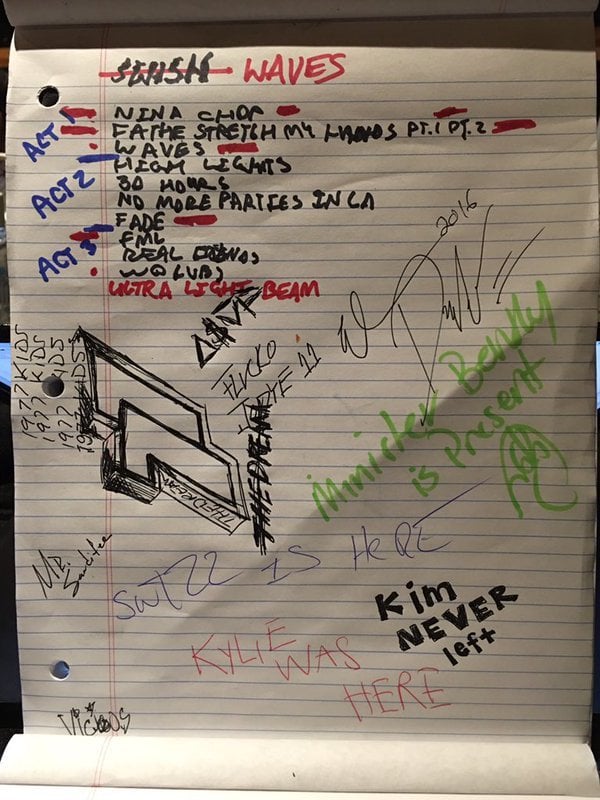 SWISH WAVES
ACT 1
NINA CHOP
FATHE STRETCH MY HANDS PT.1 PT.2
WAVES
ACT 2
HIGH LIGHTS
30 HOURS
NO MORE PARTIES IN LA
FADE
ACT 3
FML
REAL FRIENDS
WOLVES
ULTRA LIGHT BEAM
2016
1977 KIDS
1977 KIDS
1977 KIDS
1977 KIDS
A$VP
FLACKO
THEDREAM
THEDREAM
Minister Bently
is Present
SWIZZ IS HERE
Kim
NEVER
left
KYLIE
WAS
HERE